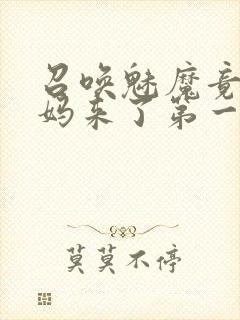 召唤魅魔竟
妈来了第一
莫莫不停